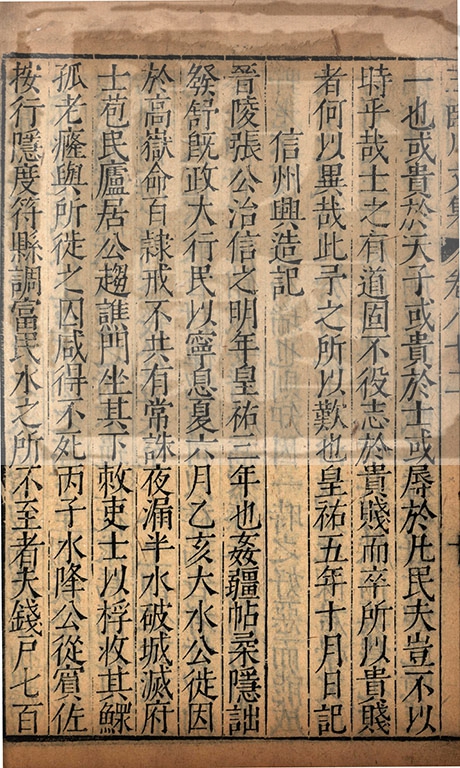 臨川文集 卷八十二
一也或貴於天子或貴於士或辱於凡民夫豈不以
時乎哉士之有道固不役志於貴賤而卒所以貴賤
者何以異哉此予之所以歎也皇祐五年十月日記
信州興造記
晉陵張公治信之明年皇祐三年也姦疆帖柔隱詘
發舒旣政大行民以寧息夏六月乙亥大水公徙因
於高嶽命百隸戒不共有常誅夜漏半水破城滅府
士苞民廬居公趨譙門坐其下敕吏士以桴收其鰥
孤老癃與所徙之囚咸得不死丙子水降公從賔佐
按行隱度符縣調富民水之所不至者夫錢戸七百